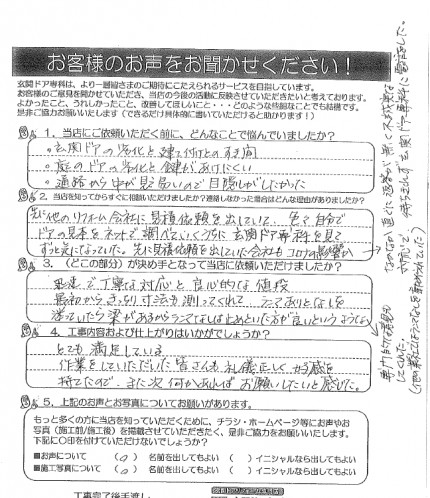 お客様のお声をお聞かせください!
玄関ドア専科は、より一層皆さまのご期待にこたえられるサービスを目指しています。
お客様のご意見を聞かせていただき、当店の今後の活動に反映させていただきたいと考えております。
よかったこと、うれしかったこと、改善してほしいこと・・・どのような些細なことでも結構です。
是非ご協力お願いします(できるだけ具体的に書いていただけると助かります!)
1、当店にご依頼いただく前に、どんなことで悩んでいましたか?
・玄関ドアの劣化と建て付けとのすき間
・庭のドアの劣化と鍵があけにくい
・通路から中が見え易いので目隠しがしたかった
2、当店を知ってからすぐに依頼いただけましたか?連絡しなかった場合はどんな理由がありましたか?
先に他のリフォーム会社に見積依頼を出していて、色々自分で
ドアの見本をネットで調べていくうちに玄関ドア専科を見て
ずっと気になっていた。先に見積依頼を出していた会社もコロナの影響か
なのか、直ぐに返答が無く大丈夫
かで
待ちきれず玄関ドア専科に電話した。
3、(どこの部分)が決め手となって当店に依頼いただけましたか?
迅速で丁寧な対応と良心的な値段
最初からきっちり寸法も測ってくれて、ランマありとなしを
迷っていたら梁があるからランマなしは止めといた方が良いというような
専門的な確認も
してくれた。
4、工事内容および仕上がりはいかがでしょうか?
とても満足している。
作業をしていただいた皆さんも礼儀正しく好感を
持てたので、また次何かあればお願いしたいと感じた。
5、上記のお声とお写真についてお願いがあります。
もっと多くの方に当店を知っていただくために、チラシ・ホームページ等にお声やお
写真(施工前/施工後)を掲載させていただきたく、是非ご協力をお願いいたします。
下記に○印を付けていただけないでしょうか?
■お声について ( ○ ) 名前を出してもよい ( ) イニシャルなら出してもよい
■施工写真について ( ○ ) 名前を出してもよい ( ) イニシャルなら出してもよい
工事完了後手渡し